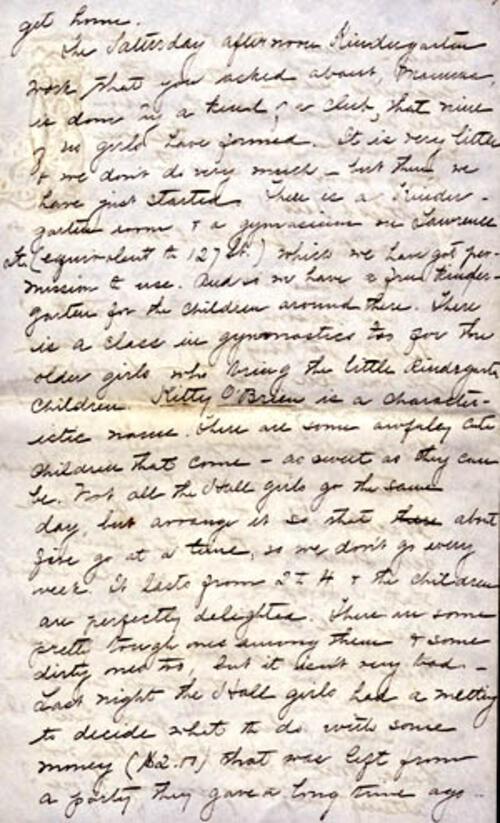 get home.
The Saturday afternoon Kindergarten
work that you asked about, Mamma,
is done in a kind of a club, that nine
of us girls have formed. It is very little
& we don't do very much – but then we
have just started. There is a Kinder-
garten room & a gymnasium on Lawrence
St. (equivalent to 127 St.) which we have got per-
mission to use. And so we have a free kinder-
garten for the children around there. There
is a class in gymnastics too for the
older girls who bring the little Kindergarten
children. Kitty O'Brien is a character-
istic name. There are some awfully cute
children that come – as sweet as they can
be. Not all the Hall girls go the same
day, but arrange it so that there about
five go at a time, so we don't go every
week. It lasts from 2 to 4 & the children
are perfectly delighted. There are some
pretty tough ones among them & some
dirty ones too, but it isn't very bad. –
Last night the Hall girls had a meeting
to decide what to do with some
money ($2.00) that was left from
a party they gave a long time ago –